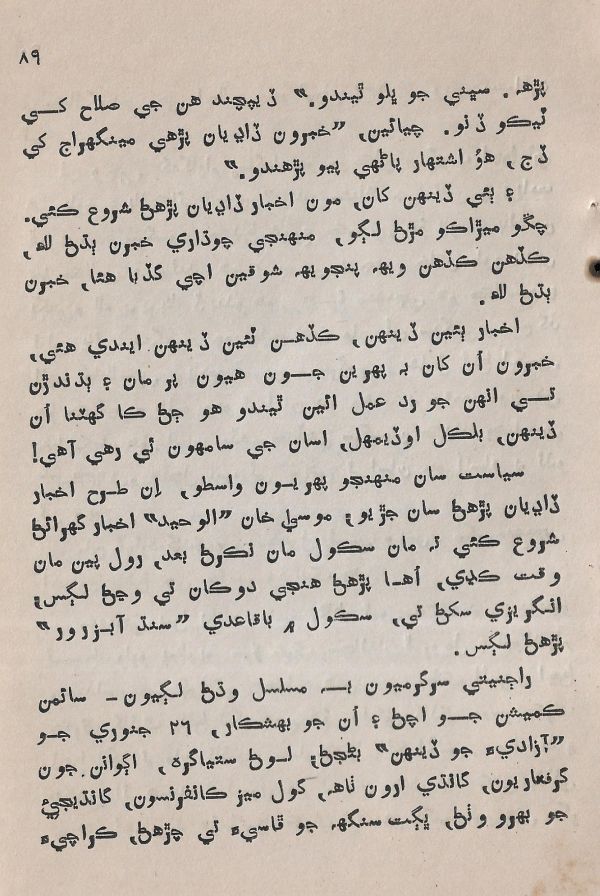 ٨٩
پڙهہ. سڀني جو ڀلو ٿيندو.” ڏيپچند هن جي صلاح کــي
ٽيڪو ڏنو. چيائين, ”خبرون ڏاڍيان پڙهي مينگهراج کي
ڏج, هؤ اشتهار پاڻهي پيو پڙهندو.”
۽ ٻئي ڏينهن کان, مون اخبار ڏاڍيان پڙهڻ شروع ڪئي.
چڱو ميڙاڪو مڙڻ لڳو, منهنجي چوڌاري خبرن ٻڌڻ لاءِ,
ڪڏهن ڪڏهن ويهہ پنجويهہ شوقين اچي گڏبا هئا, خبرن
ٻڌڻ لاءِ.
اخبار ٻئين ڏينهن, ڪڏهــن ٽئين ڏينهن ايندي هئي,
خبرون اُن کان بہ پهرين جــون هيون پر مان ۽ ٻڌندڙن
تــي انهن جو رد عمل ائين ٿيندو هو ڄڻ ڪا گهٽنا اُن
ڏينهن, بلڪل اوڏيمهل, اسان جي سامهون ٿي رهي آهي!
سياست سان منهنجو پهريــون واسطو, اِن طــرح اخبار
ڏاڍيان پڙهڻ سان جڙيو۽ موسيٰ خان ”الوحيد” اخبار گهرائڻ
شروع ڪئي تہ مان سڪول مان نڪرڻ بعد, رول پين مان
وقت ڪڍي, اُهــا پڙهڻ هنجي دوڪان تي وڃڻ لڳس۽
انگريزي سکڻ تي, سڪول ۾ باقاعدي ”سنڌ آبــزرور”
پڙهڻ لڳس.
راڄنيتي سرگرميون بــہ مسلسل وڌڻ لڳيون ــ سائمن
ڪميشن جــو اچڻ ۽ اُن جو بهشڪار, ٢٦ جنوري جــو
”آزاديءَ جو ڏينهن” بڻجڻ۽ لــوڻ ستياگرهه, اڳواڻن جون
گرفتاريون, گانڌي ارون ٺاهہ, گول ميز ڪانفرنسون, گانڌيجيءَ
جو بهرو وٺڻ, ڀڳت سنگهہ جو ڦاسيءَ تي چڙهڻ, ڪراچيءَ